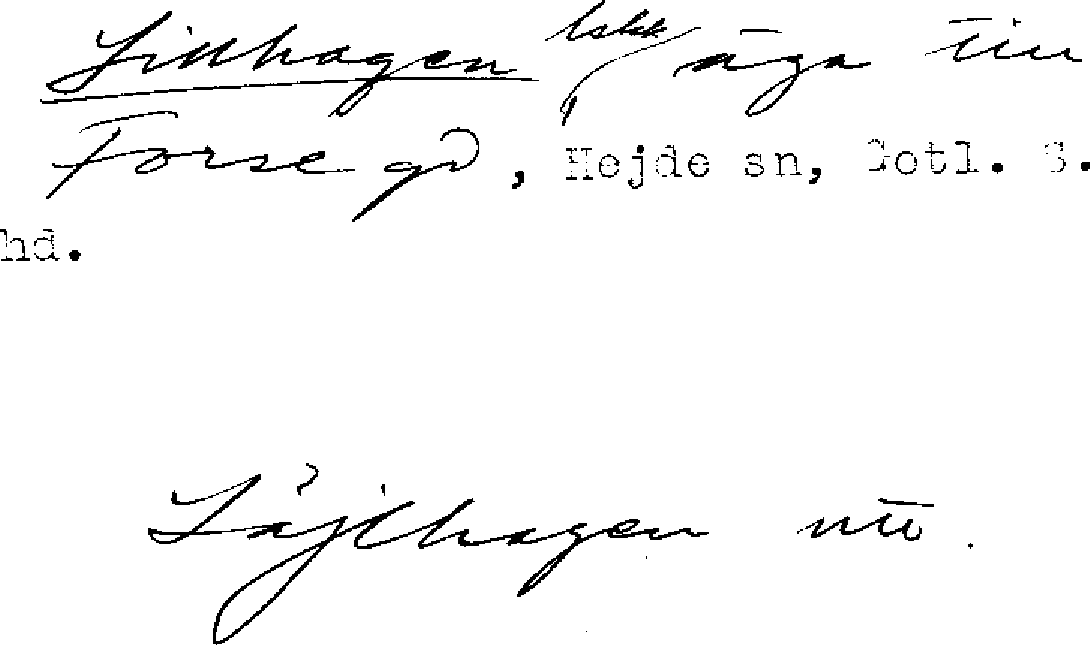 Lillhagen äga till
Forse gd, Hejde sn, Gotl. S.
hd.
Läjlhagen